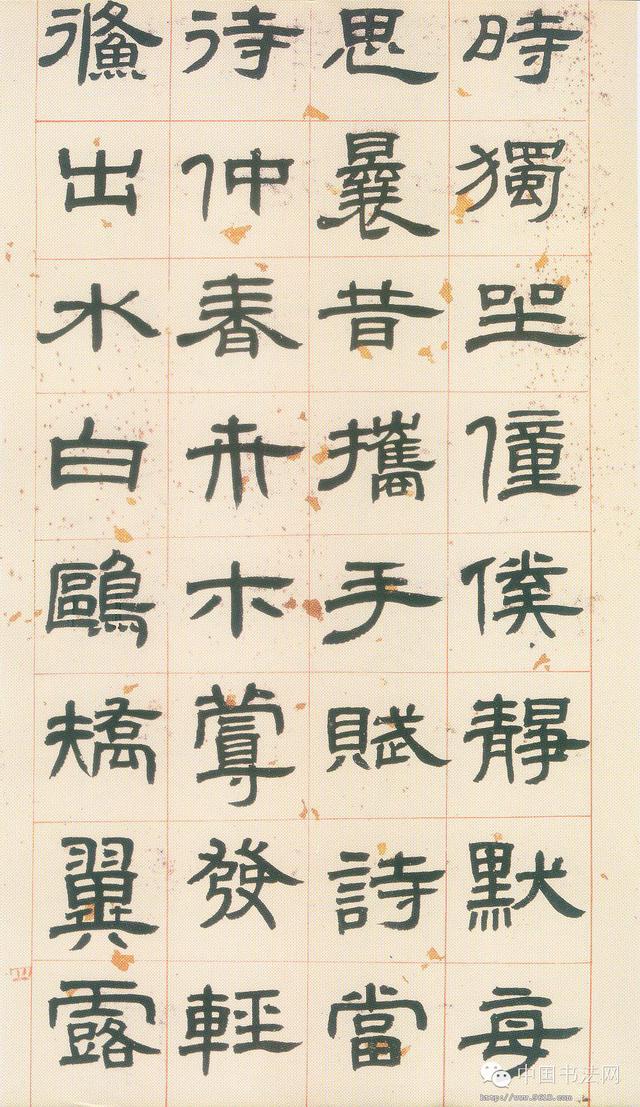 時獨坐僮僕靜默每
思曩昔攜手賦詩當
待仲春卉木蔓發輕
鯈出水白鷗矯翼露
中国书法网
http://www.9610.com